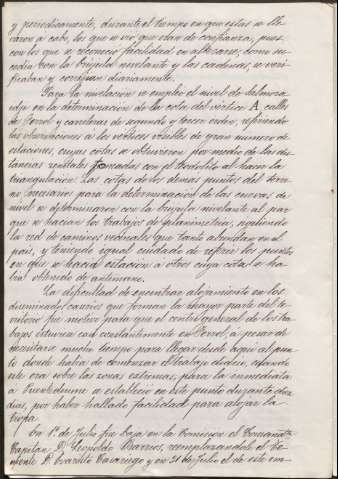 y periodicamente, durante el tiempo en que estas se lle-
varon a cabo, los que se vio que eran de confianza, pues
con los que se reconoció facilidad en alterarse, como su-
cedia con la brujula nivelante y las cadenas, se veri-
ficaban y corregian diariamente.
Para la nivelacion se empleó el nivel de
en la determinacion de la cota del vertice A calle
de Ferrol y carreteras de segundo y tercer orden, refiriendo
las observaciones a los vertices visibles de gran numero de
estaciones, cuyas cotas se obtuvieron por medio de las dis-
tancias zenitales tomadas con el teodolito al hacer la
triangulacion. Las cotas de los demas puntos del terre-
no necesarios para la determinacion de las curvas de
nivel se determinaron con la brujula nivelante al par
que se hacian los trabajos de planimetria, siguiendo
la red de caminos vecinales que tanto abundan en el
pais, y teniendo igual cuidado de referir los puntos
en que se hacia estacion a otros cuya cota se ha-
bia obtenido de antemano.
La dificultad de encontrar alojamiento en los
diseminados caserios que forman la mayor parte del te-
rritorio fue motivo para que el centro general de los tra-
bajos estuviera casi constantemente en Ferrol, a pesar de
necesitarse mucho tiempo para llegar desde aqui al pun-
to donde habia de comenzar el trabajo diario,
las zonas extremas, para la inmediata
a Puentedeume se estableció en este punto durante
dias, por haber hallado facilidad para alojar la
tropa.
En 1º de Julio fue baja en la Comision el Comandante
Capitan D. Leopoldo Barrios, reemplazandole el Te-
niente D. Evaristo y en 31 de Julio el de este em-